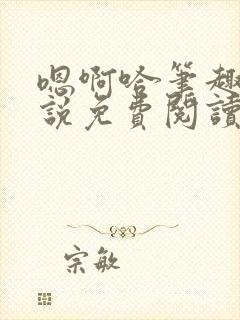 嗯啊哈筆趣
說免費閱讀
宗敏